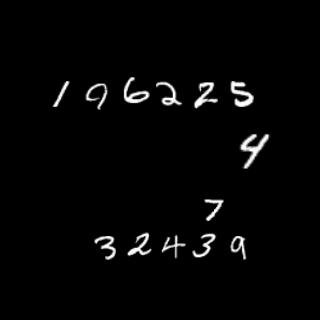 196225
4
7
32439